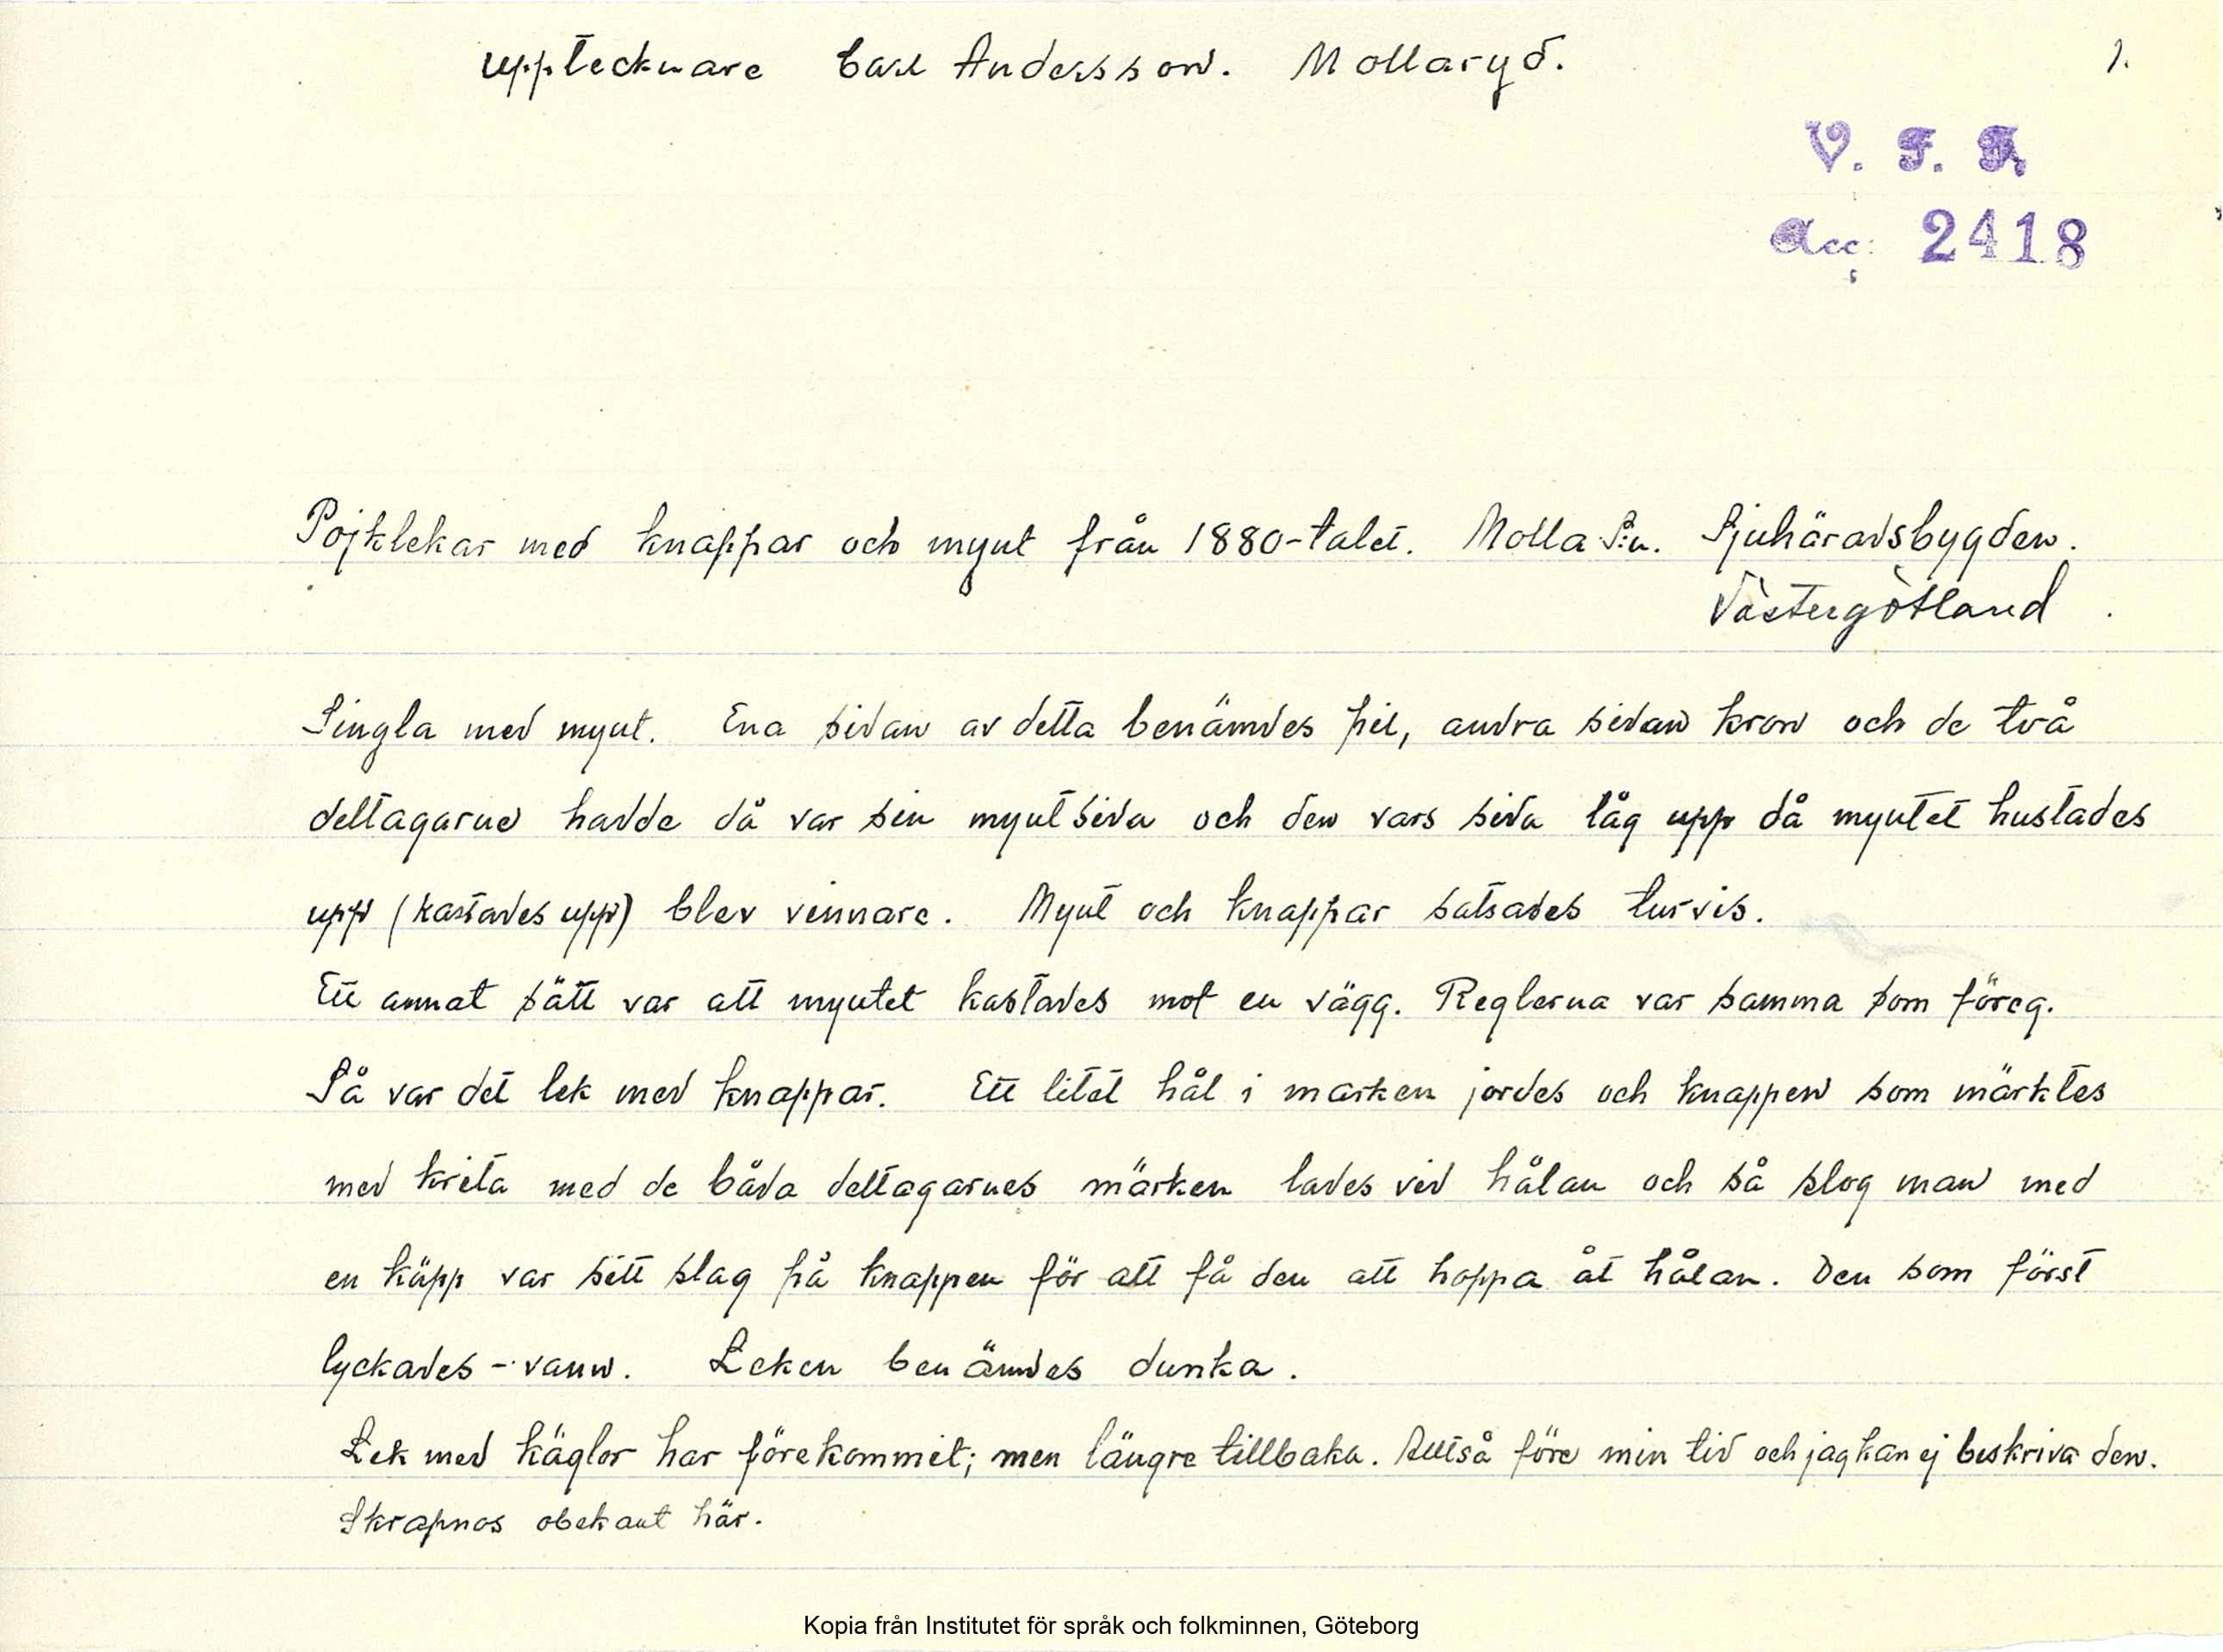 Upptecknare Carl Andersson. Mollaryd.
1.
V. F. F.
Acc: 2418
Pojklekar med knappar och mynt från 1880-talet. Molla S:n. Sjuhäradsbygden.
Västergötland
Singla med mynt. Ena sidan av detta benämdes pil, andra sidan kron och de två
deltagarne hadde då var sin myntsida och den vars sida låg upp då myntet hustades
upp (kastades upp) blev vinnare. Mynt och knappar satsades turvis.
Ett annat sätt var att myntet kastades mot en vägg. Reglerna var samma som föreg.
Så var det lek med knappar. Ett litet hål i marken jordes och knappen som märktes
med krita med de båda deltagarnes märken lades vid hålan och så slog man med
en käpp var sitt slag på knappen för att få den att hoppa åt hålan. Den som först
lyckades - vann. Leken benämdes dunka.
Lek med käglor har förekommit; men längre tillbaka. Alltså före min tid och jag kan ej beskriva den.
Skrapnos obekant här.
Kopia från Institutet för språk och folkminnen, Göteborg